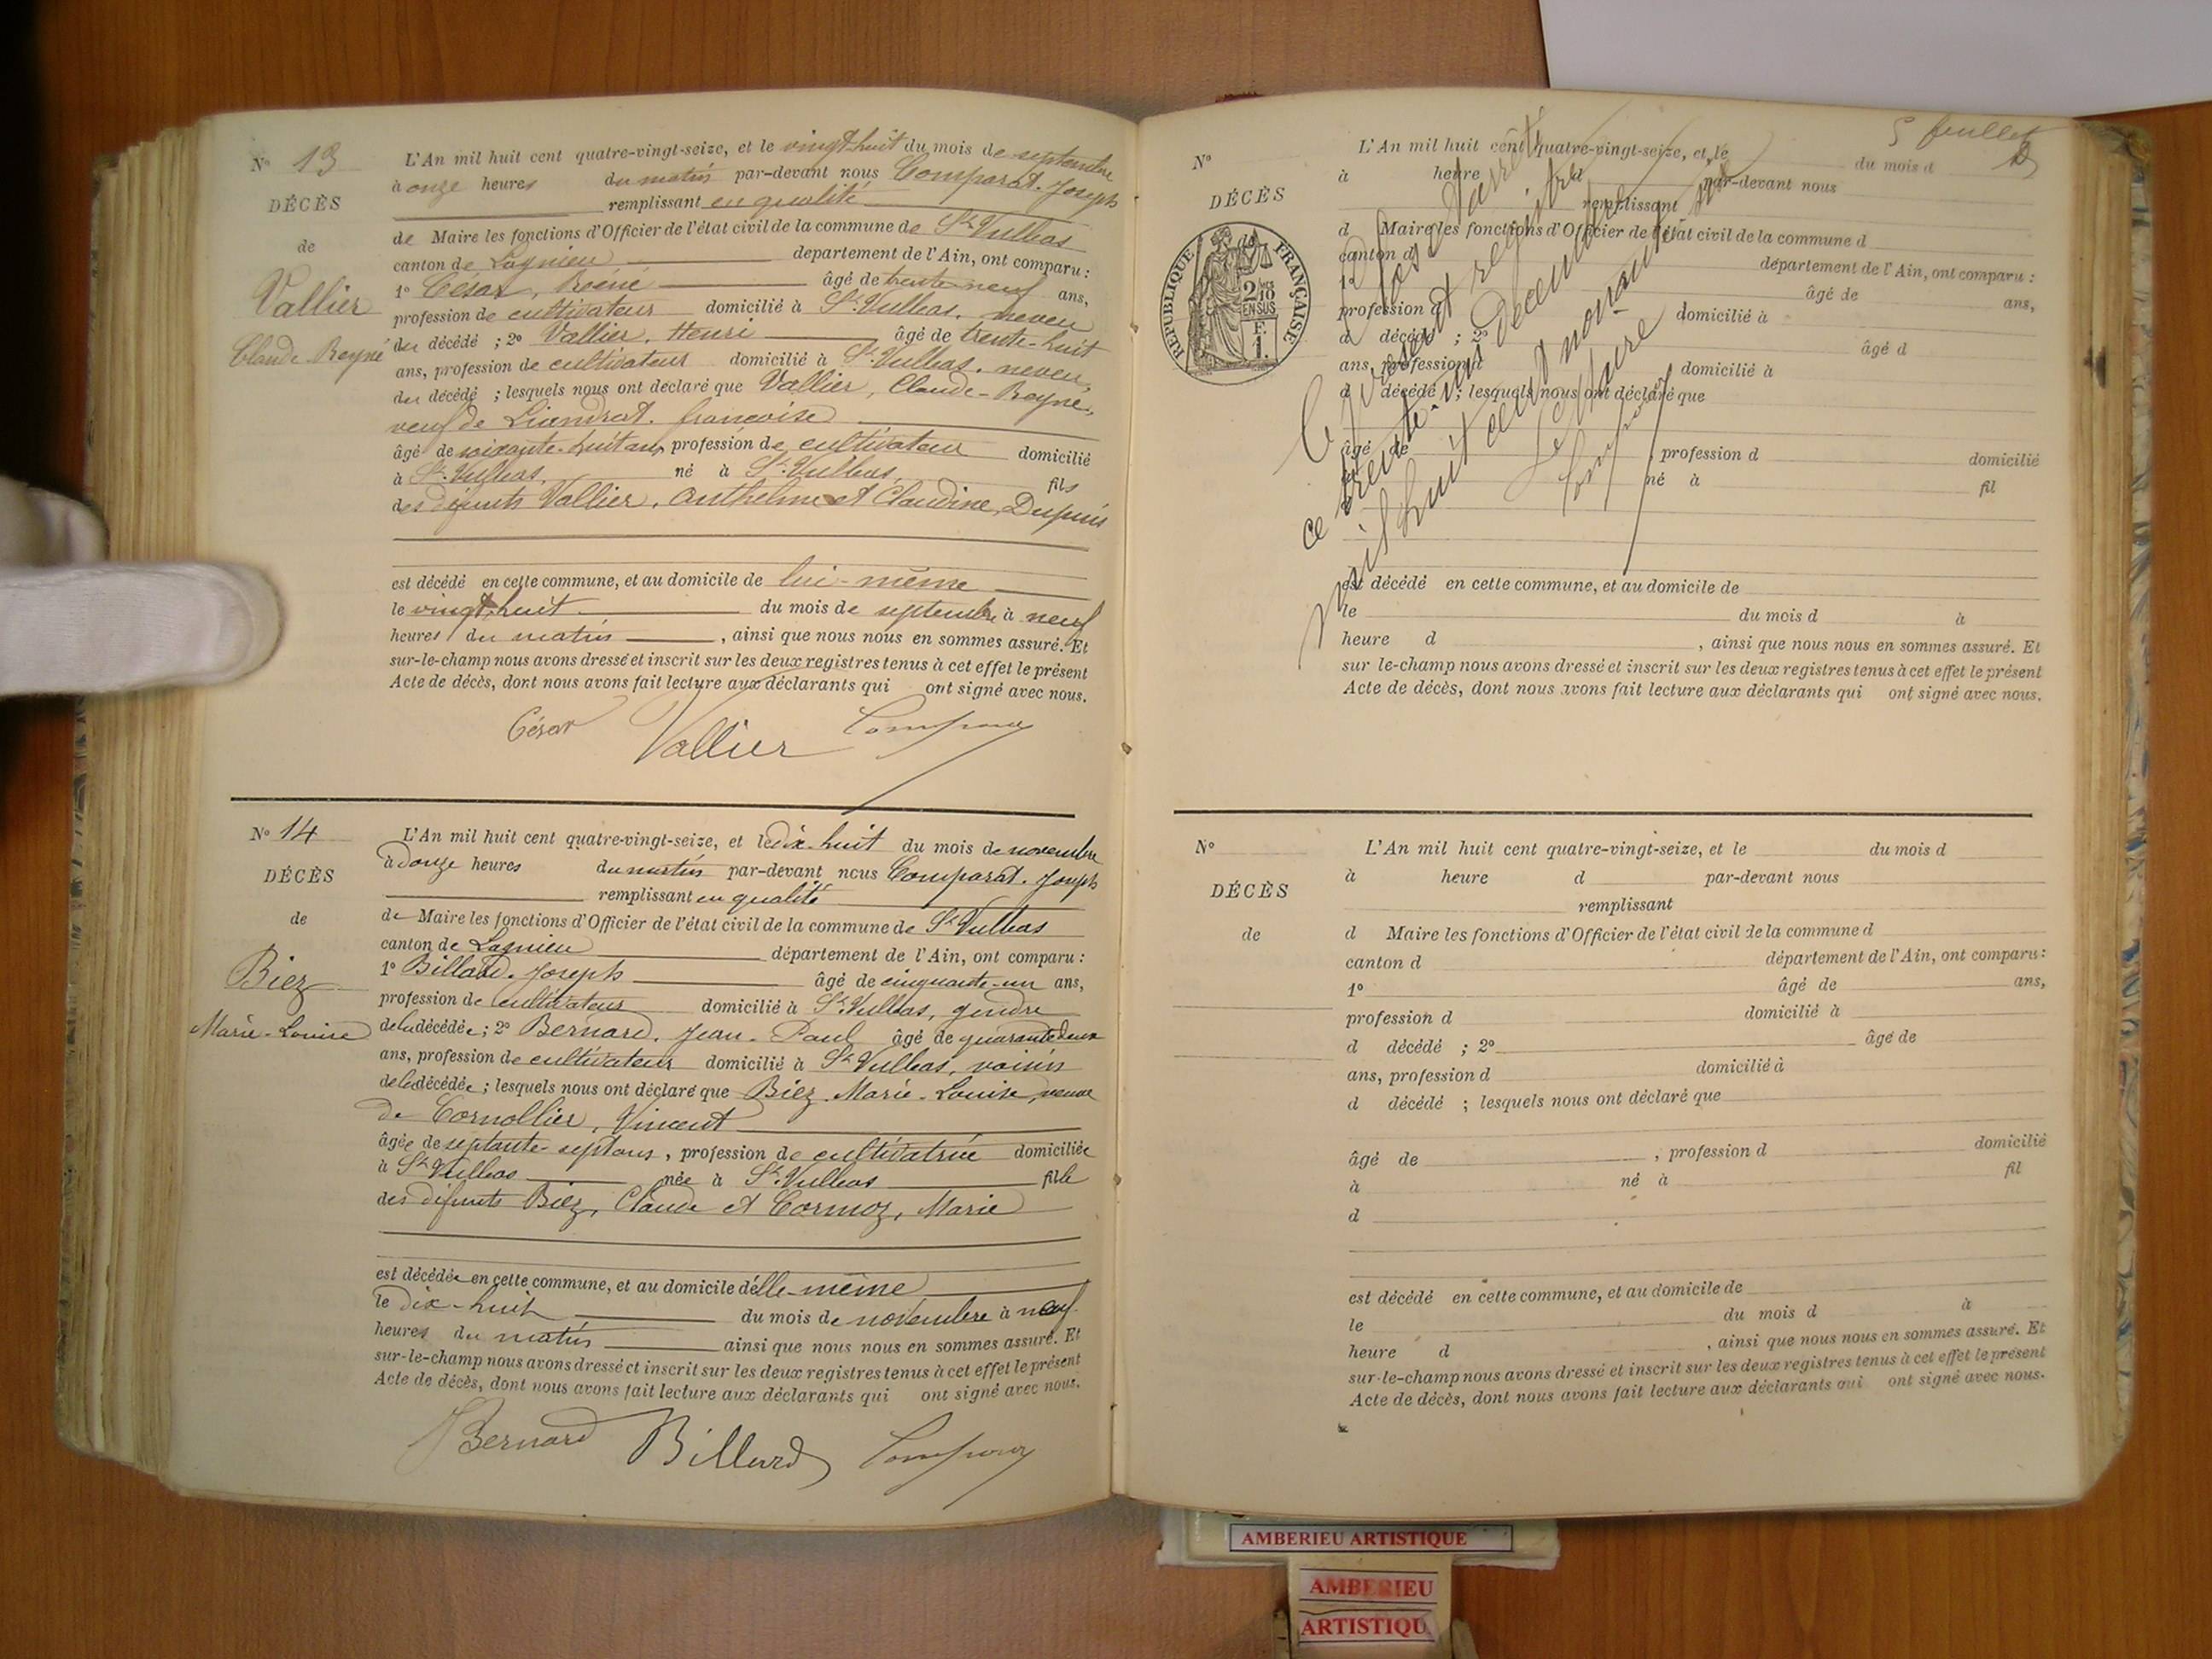 N° 13
DÉCÈS
de
Vallier
Claude-Reyné
L'An mil huit cent quatre-vingt-seize, et le vingt-huit du mois de septembre
à onze heures du matin par-devant nous Comparat. Joseph
remplissant en qualité
de Maire les fonctions d'Officier de l'état civil de la commune de St Vulbas
canton de Lagnieu département de l'Ain, ont comparu :
1° César, Réené âgé de trente-neuf ans,
profession de cultivateur domicilié à St Vulbas. neveu
du décédé ; 2° Vallier, Henri âgé de trente-huit
ans, profession de cultivateur domicilié à St Vulbas. neveu
du décédé ; lesquels nous ont déclaré que Vallier, Claude-Reyné,
veuf de Liandrat. françoise
âgé de soixante-huit ans, profession de cultivateur domicilié
à St Vulbas, né à St Vulbas, fils
des défunts Vallier, Anthelme et Claudine, Dupuis
est décédé en cette commune, et au domicile de lui-même
le vingt-huit du mois de septembre à neuf
heures du matin , ainsi que nous nous en sommes assuré. Et
sur-le-champ nous avons dressé et inscrit sur les deux registres tenus à cet effet le présent
Acte de décès, dont nous avons fait lecture aux déclarants qui ont signé avec nous.
César Vallier Comparat
N° 14
DÉCÈS
de
Biez
Marie-Louise
L'An mil huit cent quatre-vingt-seize, et le dix-huit du mois de novembre
à onze heures du matin par-devant nous Comparat. Joseph
remplissant en qualité
de Maire les fonctions d'Officier de l'état civil de la commune de St Vulbas
canton de Lagnieu département de l'Ain, ont comparu :
1° Billard. Joseph âgé de cinquante-un ans,
profession de cultivateur domicilié à St Vulbas, gendre
de la décédée ; 2° Bernard. Jean-Paul âgé de quarante deux
ans, profession de cultivateur domicilié à St Vulbas, voisin
de la décédée ; lesquels nous ont déclaré que Biez. Marie-Louise, veuve
de Cornollier, Vincent
âgée de septante-sept ans, profession de cultivatrice domiciliée
à St Vulbas née à St Vulbas fille
des défunts Biez, Claude et Cormoz, Marie
est décédée en cette commune, et au domicile d'elle-même
le dix-huit du mois de novembre à neuf
heures du matin ainsi que nous nous en sommes assuré. Et
sur-le-champ nous avons dressé et inscrit sur les deux registres tenus à cet effet le présent
Acte de décès, dont nous avons fait lecture aux déclarants qui ont signé avec nous.
Bernard Billard Comparat
5 feuillet
N°
DÉCÈS
de
RÉPUBLIQUE FRANÇAISE
2/10 EN SUS
F.
1.
L'An mil huit cent quatre-vingt-seize, et le du mois d
à heure d par-devant nous
remplissant
d Maire les fonctions d'Officier de l'état civil de la commune d
canton d département de l'Ain, ont comparu :
1° âgé de ans,
profession d domicilié à
d décédé ; 2° âgé d
ans, profession d domicilié à
d décédé ; lesquels nous ont déclaré que
âgé de , profession d domicilié
né à fil
Clos et arrêté
le présent registre
ce trente-un décembre
mil huit cent nonante-six
Le Maire
Comparat
est décédé en cette commune, et au domicile de
le du mois d à
heure d , ainsi que nous nous en sommes assuré. Et
sur le-champ nous avons dressé et inscrit sur les deux registres tenus à cet effet le présent
Acte de décès, dont nous avons fait lecture aux déclarants qui ont signé avec nous.
N°
DÉCÈS
de
L'An mil huit cent quatre-vingt-seize, et le du mois d
à heure d par-devant nous
remplissant
d Maire les fonctions d'Officier de l'état civil de la commune d
canton d département de l'Ain, ont comparu :
1° âgé de ans,
profession d domicilié à
d décédé ; 2° âgé de
ans, profession d domicilié à
d décédé ; lesquels nous ont déclaré que
âgé de , profession d domicilié
à né à fil
d
est décédé en cette commune, et au domicile de
le du mois d à
heure d , ainsi que nous nous en sommes assuré. Et
sur-le-champ nous avons dressé et inscrit sur les deux registres tenus à cet effet le présent
Acte de décès, dont nous avons fait lecture aux déclarants qui ont signé avec nous.
AMBERIEU ARTISTIQUE
AMBERIEU
ARTISTIQU